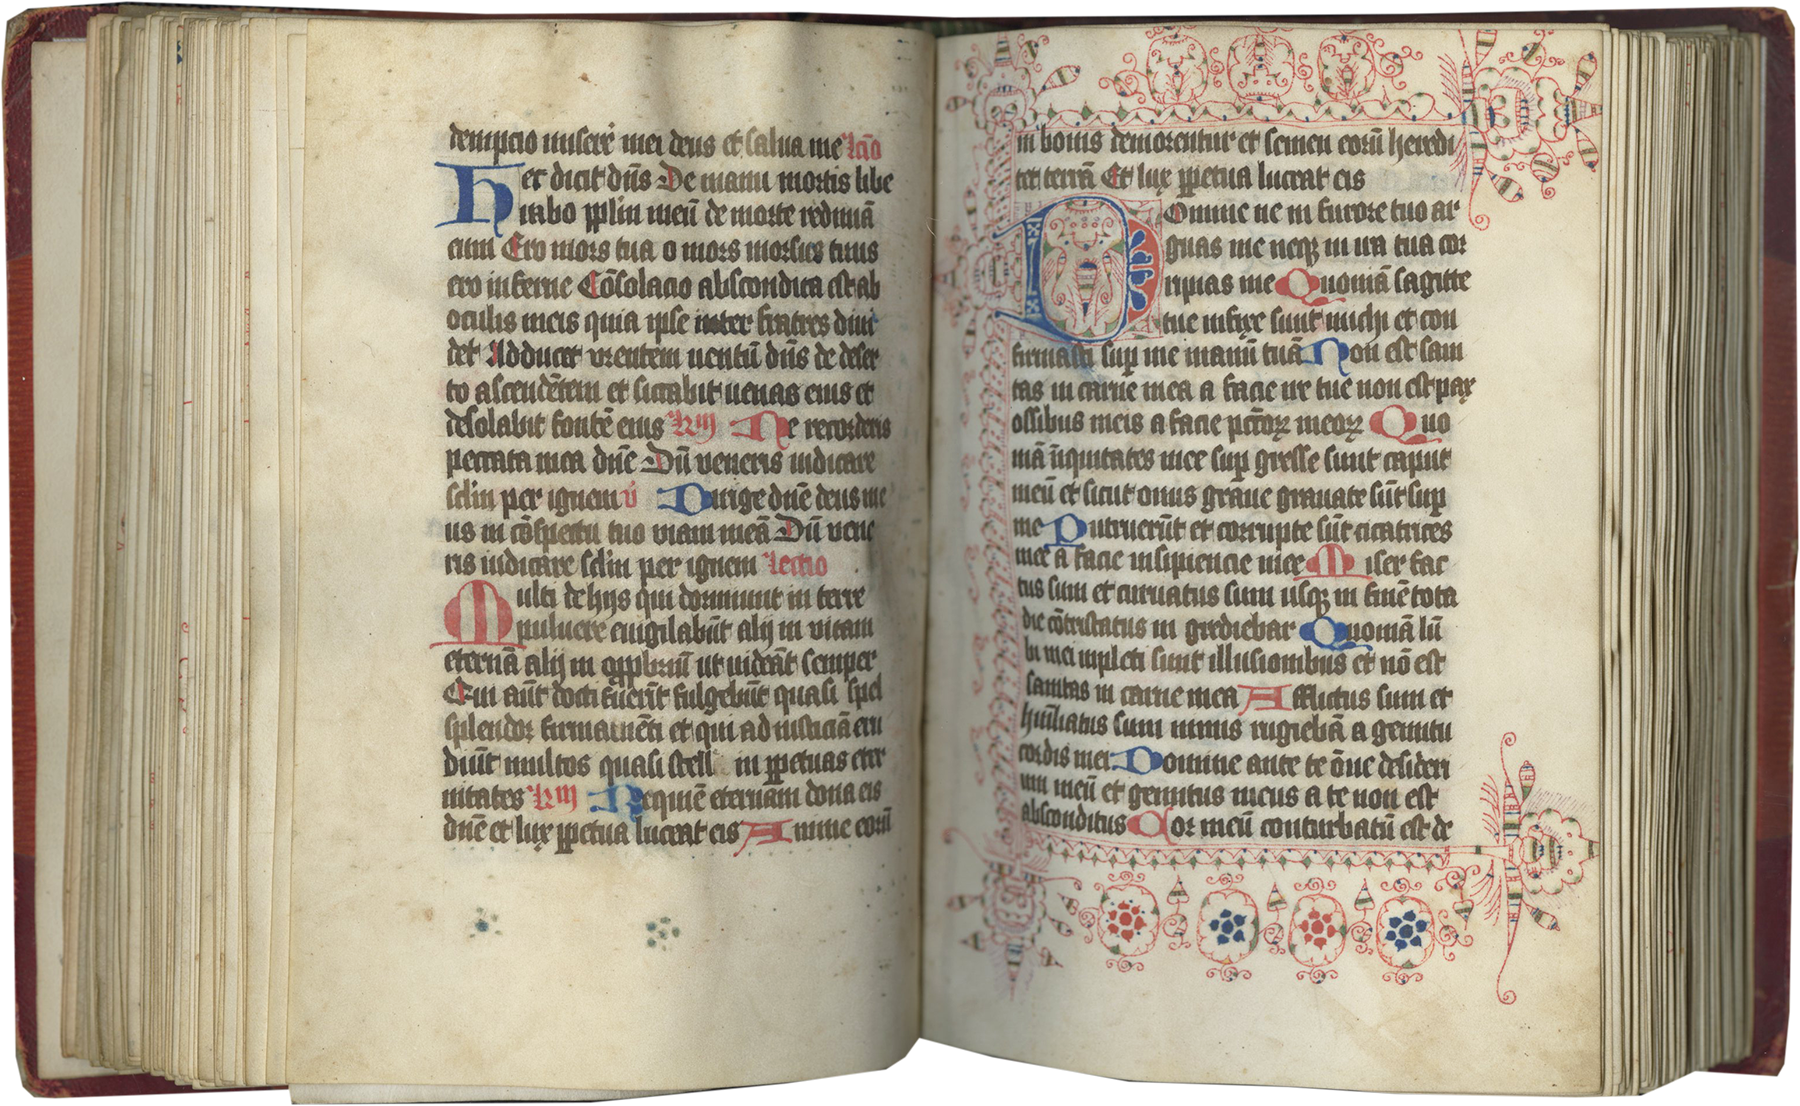 dempcio miserē mei deus et salua me lc̄o
Hec dicit dn̄s De manu mortis libe
rabo ppl'm meū de morte redimā
eum Ero mors tua o mors morsus tuus
ero inferne Cōsolacio abscondita est ab
oculis meis quia ipse inter fratres diui
det Adducet vrentem uentū dn̄s de deser
to ascendētem et siccabit uenas eius et
desolabit fontē eius Rm̄ Ne recorderis
peccata mea dn̄e Dū veneris iudicare
sc'lm per ignem v̄ Dirige dn̄e deus me
us in cōspectu tuo viam meā Dū vene
ris iudicare sc'lm per ignem lectio
Multi de hijs qui dormiunt in terre
puluere euigilabūt alij in vitam
eternā alij in opprbriū ut uideāt semper
Qui aūt docti fuerīt fulgebūt quasi spel
splendor firmamēti et qui ad iusticiā eru
diūt multos quasi stell in ꝑpetuas eter
nitates Rm̄ Requiē eternam dona eis
dn̄e et lux ꝑpetua luceat eis Anime eorū
in bonis demorentur et semen eorū heredi
tet terrā Et lux ꝑpetua luceat eis
Domine ne in furore tuo ar
guas me neqꝫ in ira tua cor
ripias me Quoniā sagitte
tue infixe sunt michi et con
firmasti suꝑ me manū tuā Non est sani
tas in carne mea a facie ire tue non est pax
ossibus meis a facie pctōꝝ meoꝝ Quo
niā īiquitates mee suꝑ gresse sunt caput
meū et sicut onus graue grauate sūt suꝑ
me Putruerūt et corrupte sūt cicatrices
mee a facie insipiencie mee Miser fac
tus sum et curuatus sum usqꝫ in finē tota
die cōtristatus in grediebar Quoniā lū
bi mei inpleti sunt illusionibus et nō est
sanitas in carne mea Afflictus sum et
humiliatus sum nimis rugiebā a gemitu
cordis mei Domine ante te ōne desideri
um meū et gemitus meus a te non est
absconditus Cor meū conturbatū est de